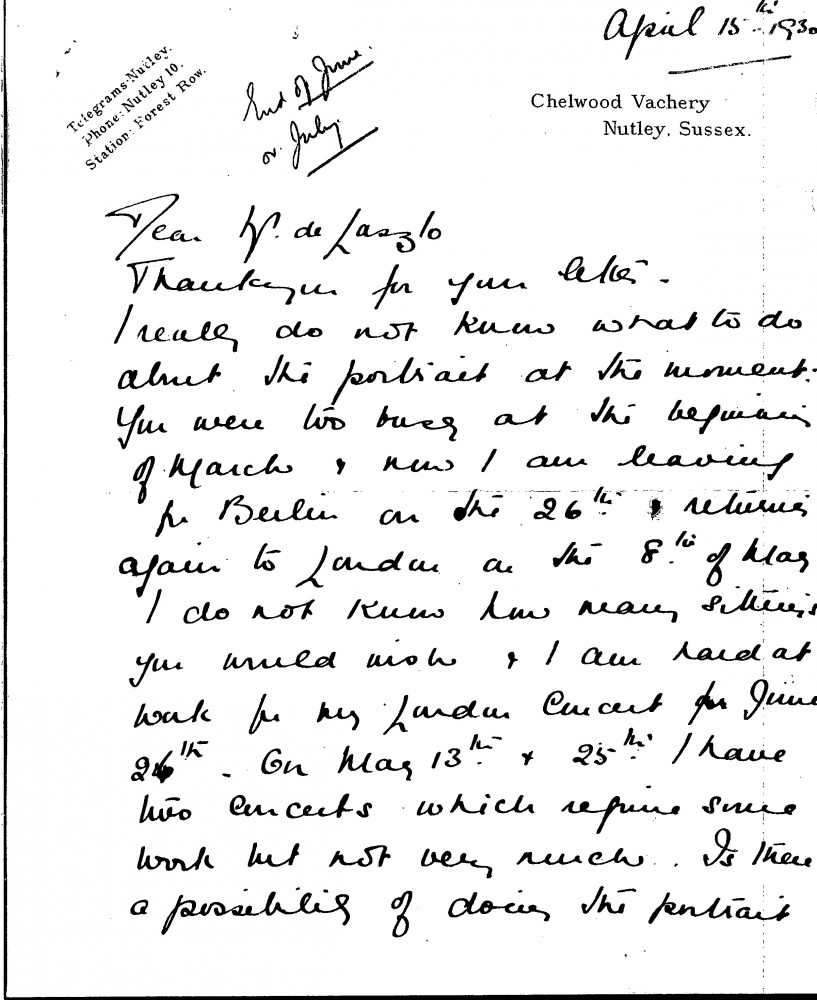 April 15th 1930
Telegrams: Nutley.
Phone: Nutley 10.
Station: Forest Row.
End of June.
or July.
Chelwood Vachery
Nutley, Sussex.
Dear Mr. de Laszlo
Thankyou for your letter.
I really do not know what to do
about the portrait at the moment.
You were too busy at the beginning
of March & now I am leaving
for Berlin on the 26th & returning
again to London on the 8th of May
I do not know how many sittings
you would wish & I am hard at
work for my London Concert for June
26th. On May 13th & 25th I have
two concerts which require some
work but not very much. Is there
a possibility of doing the portrait